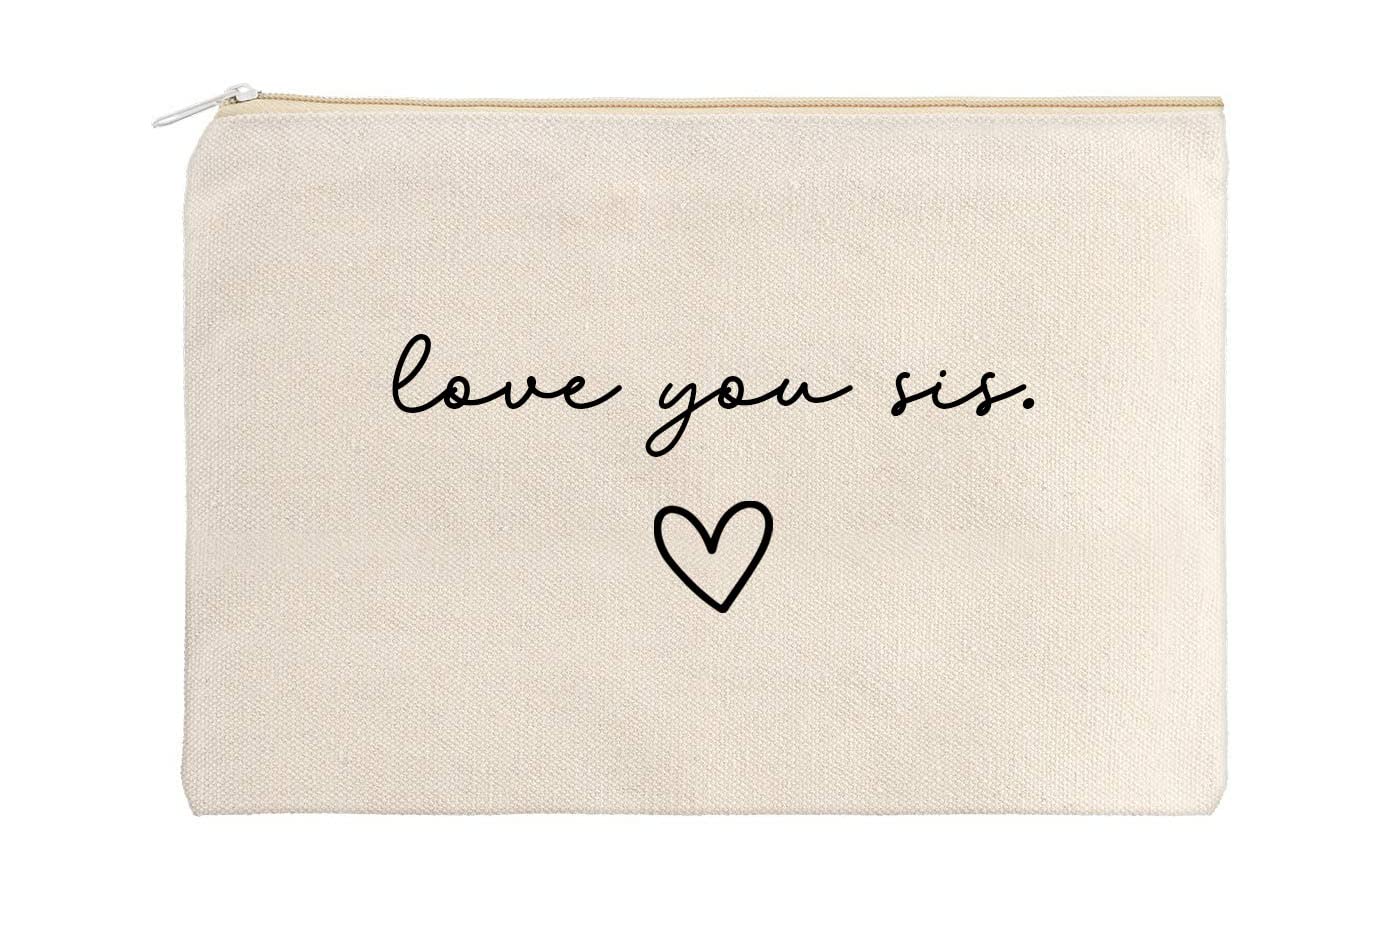 love you sis.